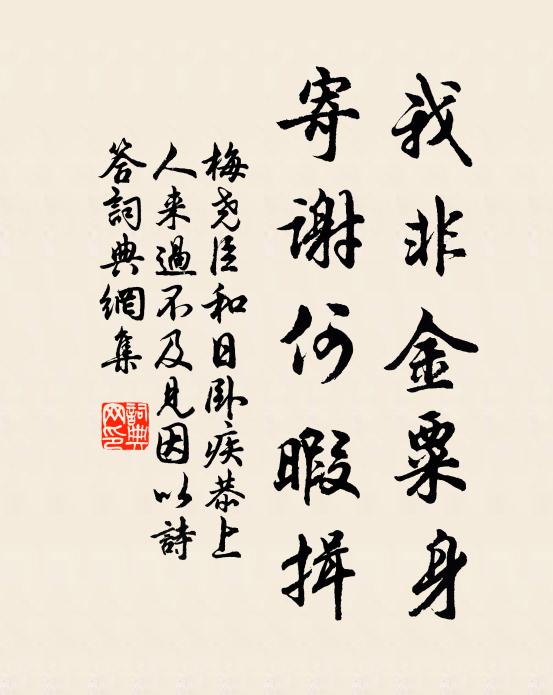 我非金粟身
寄谢何暇揖
梅尧臣和日卧疾恭上
人来過不及見因以詩
答詞典網集
詞典
网印